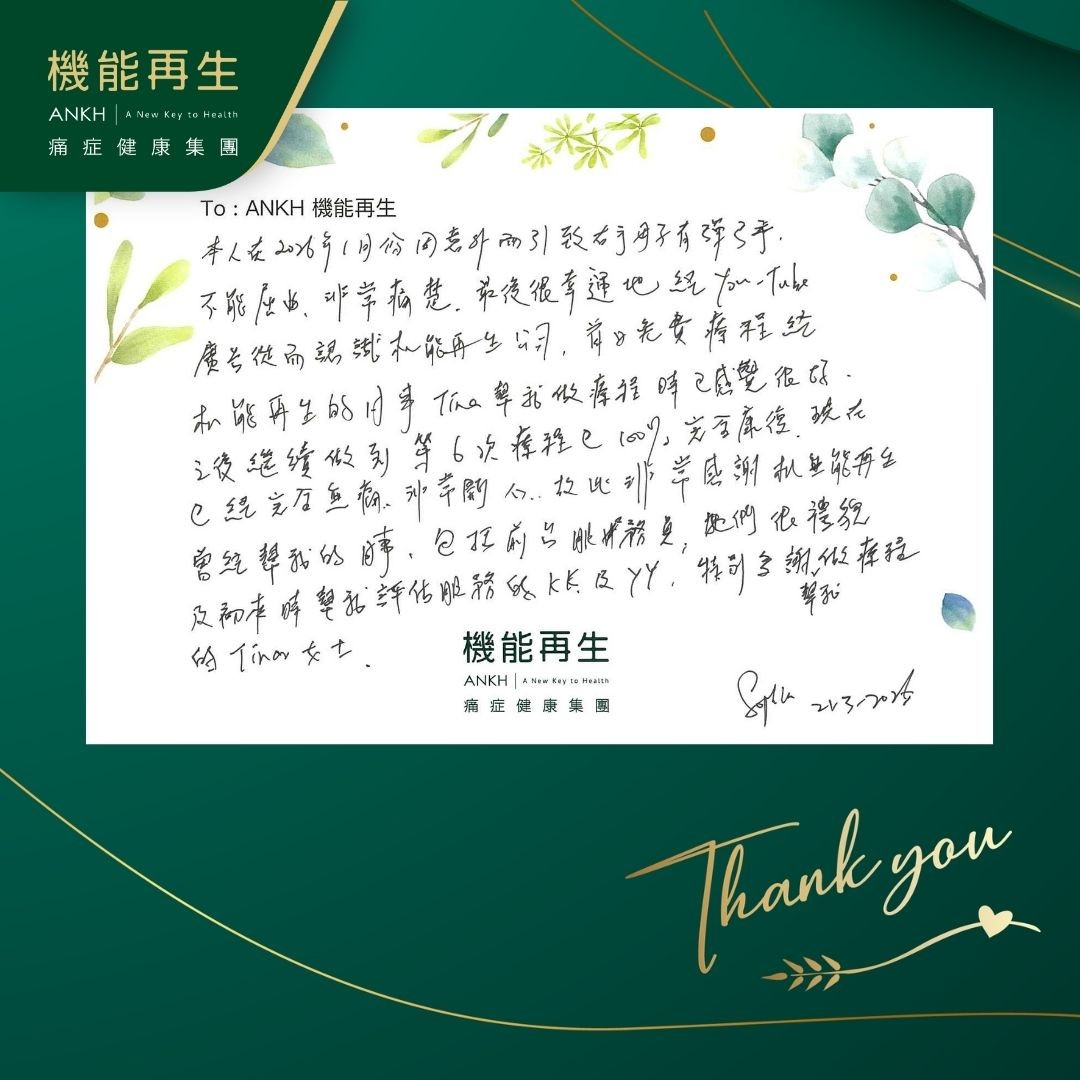 機能再生
ANKH | A New Key to Health
痛症健康集團
To : ANKH 機能再生
本人在2026年1月份因意外而引致右手母子有彈弓手.
不能屈曲、非常痛楚. 最後很幸運地經You-Tube
廣告從而認識机能再生公司, 首次免費療程経
机能再生的同事Tina幫我做療程時已感覺很好.
之後継續做到第6次療程已100%完全康復. 現在
已経完全無痛、非常開心. 故此非常感謝机能再生
曾経幫我的同事, 包括前台服務員, 她們很禮貌
及初來時幫我評估服務的KK及YY. 特別多謝幫我做療程
的Tina女士.
機能再生
ANKH | A New Key to Health
痛症健康集團
21-3-202
Thank you